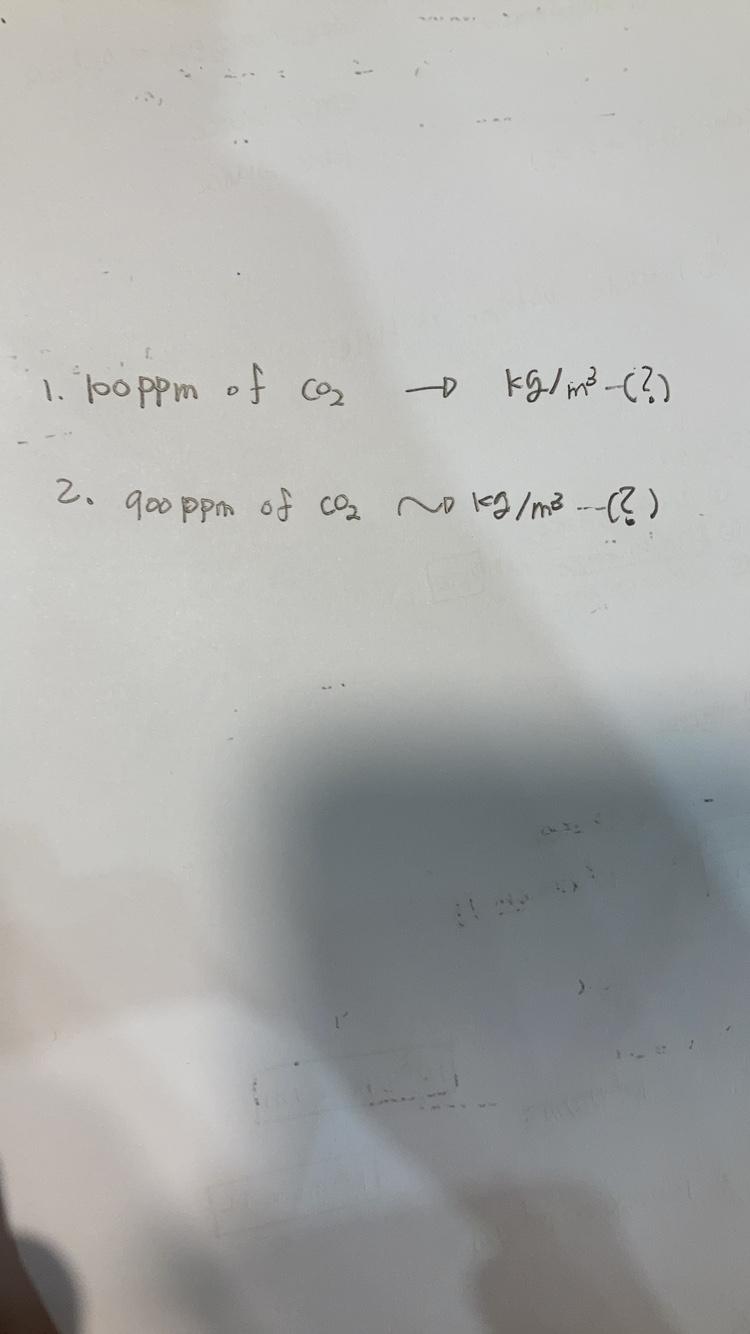 1. 100ppm of CO₂ → kg/m³ -(?)
2. 900ppm of CO₂ ~→ kg/m³ ---(?)